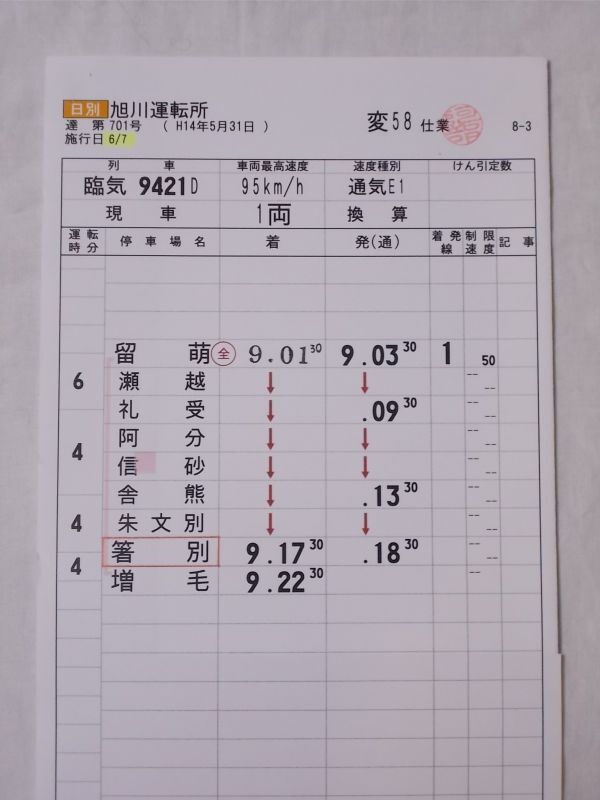 日別 旭川運転所
達 第 701号 ( H14年5月31日 ) 変58 仕業 8-3
施行日 6/7
列車 車両最高速度 速度種別 けん引定数
臨気 9421D 95km/h 通気E1
現車 1両 換算
運転時分 停車場名 着 発(通) 着発線 制限速度 記事
留萌 全 9.01 30 9.03 30 1 50
6 瀬越 ↓ ↓ -- --
礼受 ↓ .09 30 -- --
阿分 ↓ ↓ -- --
4 信砂 ↓ ↓ -- --
舎熊 ↓ .13 30 -- --
4 朱文別 ↓ ↓ -- --
4 箸別 9.17 30 .18 30 -- --
増毛 9.22 30 --